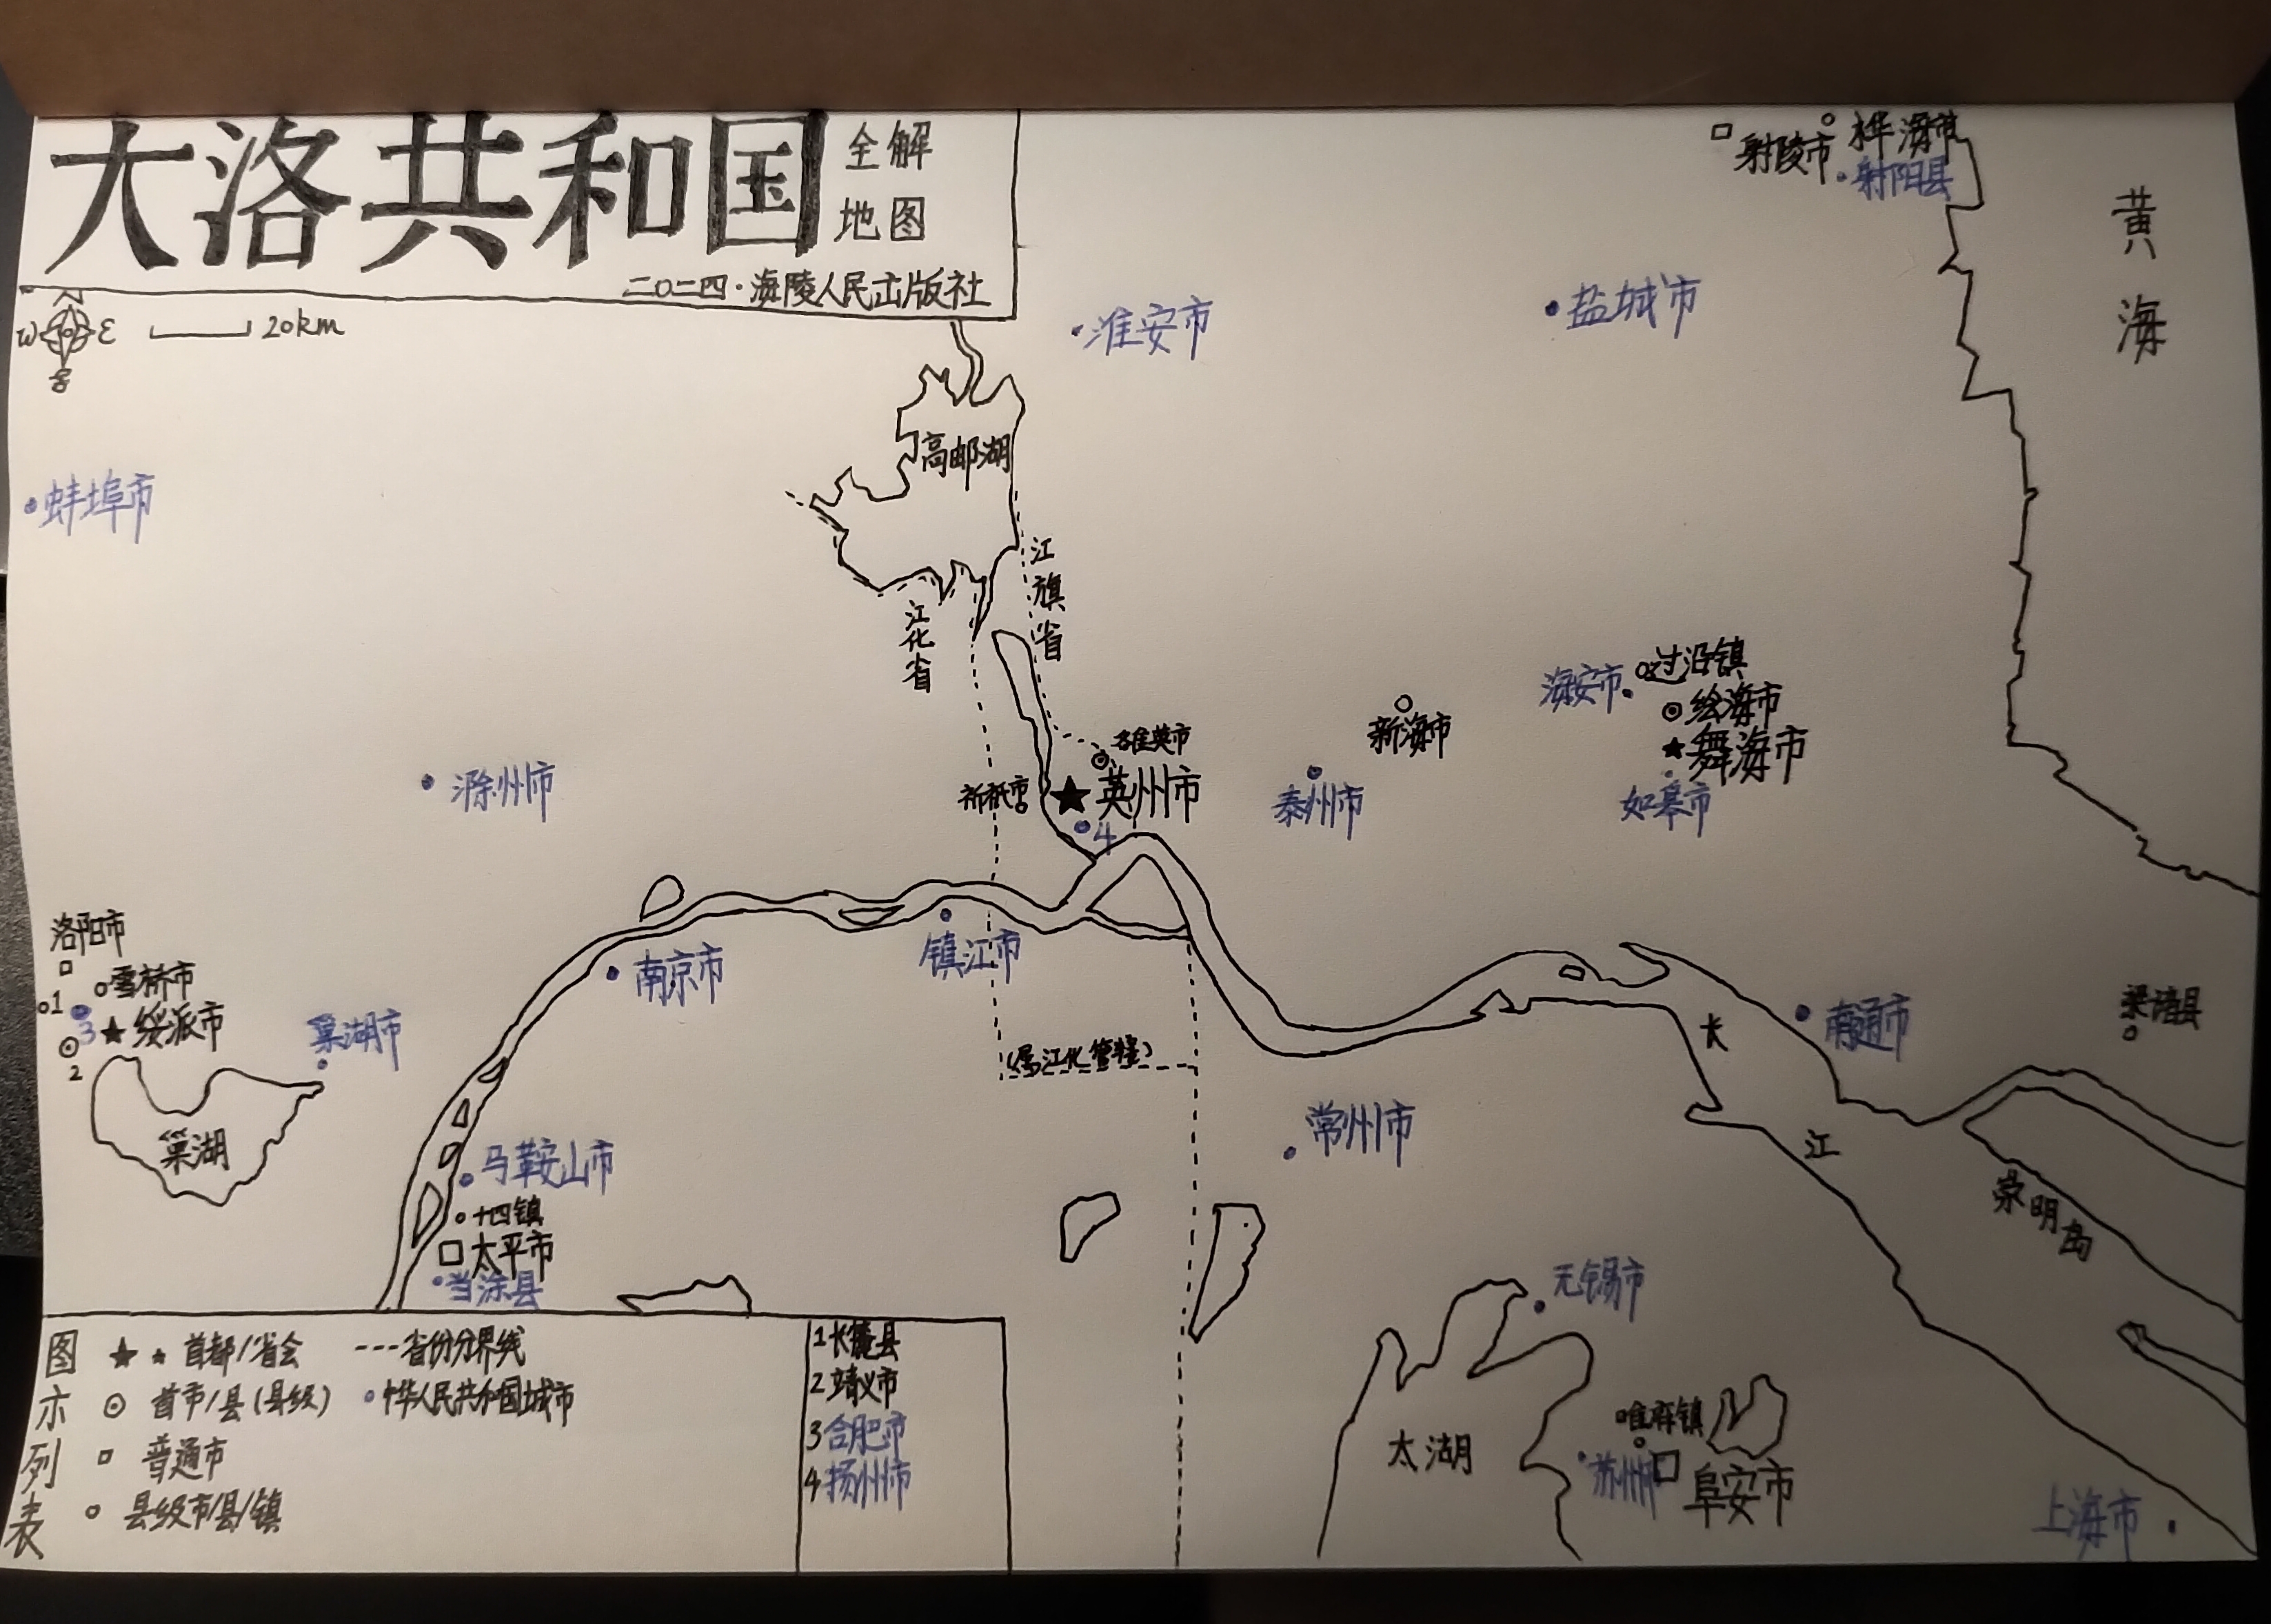 大洛共和国
全解
地图
二〇二四·海陵人民出版社
W E
S
20km
射陵市
射阳县
黄海
淮安市
盐城市
高邮湖
蚌埠市
江旗省
江化省
海安市
过沿镇
绘海市
舞海市
如皋市
新海市
泰州市
英州市
4
滁州市
南京市
镇江市
洛阳市
雪桥市
1
3
绥派市
2
巢湖市
巢湖
(属江化管辖)
长江
南通市
崇明岛
常州市
马鞍山市
十四镇
太平市
当涂县
无锡市
太湖
苏州市
阜安市
上海市
图示列表
首都/省会
---省份分界线
首市/县(县级)
中华人民共和国城市
普通市
县级市/县/镇
2 靖义市
3 合肥市
4 扬州市